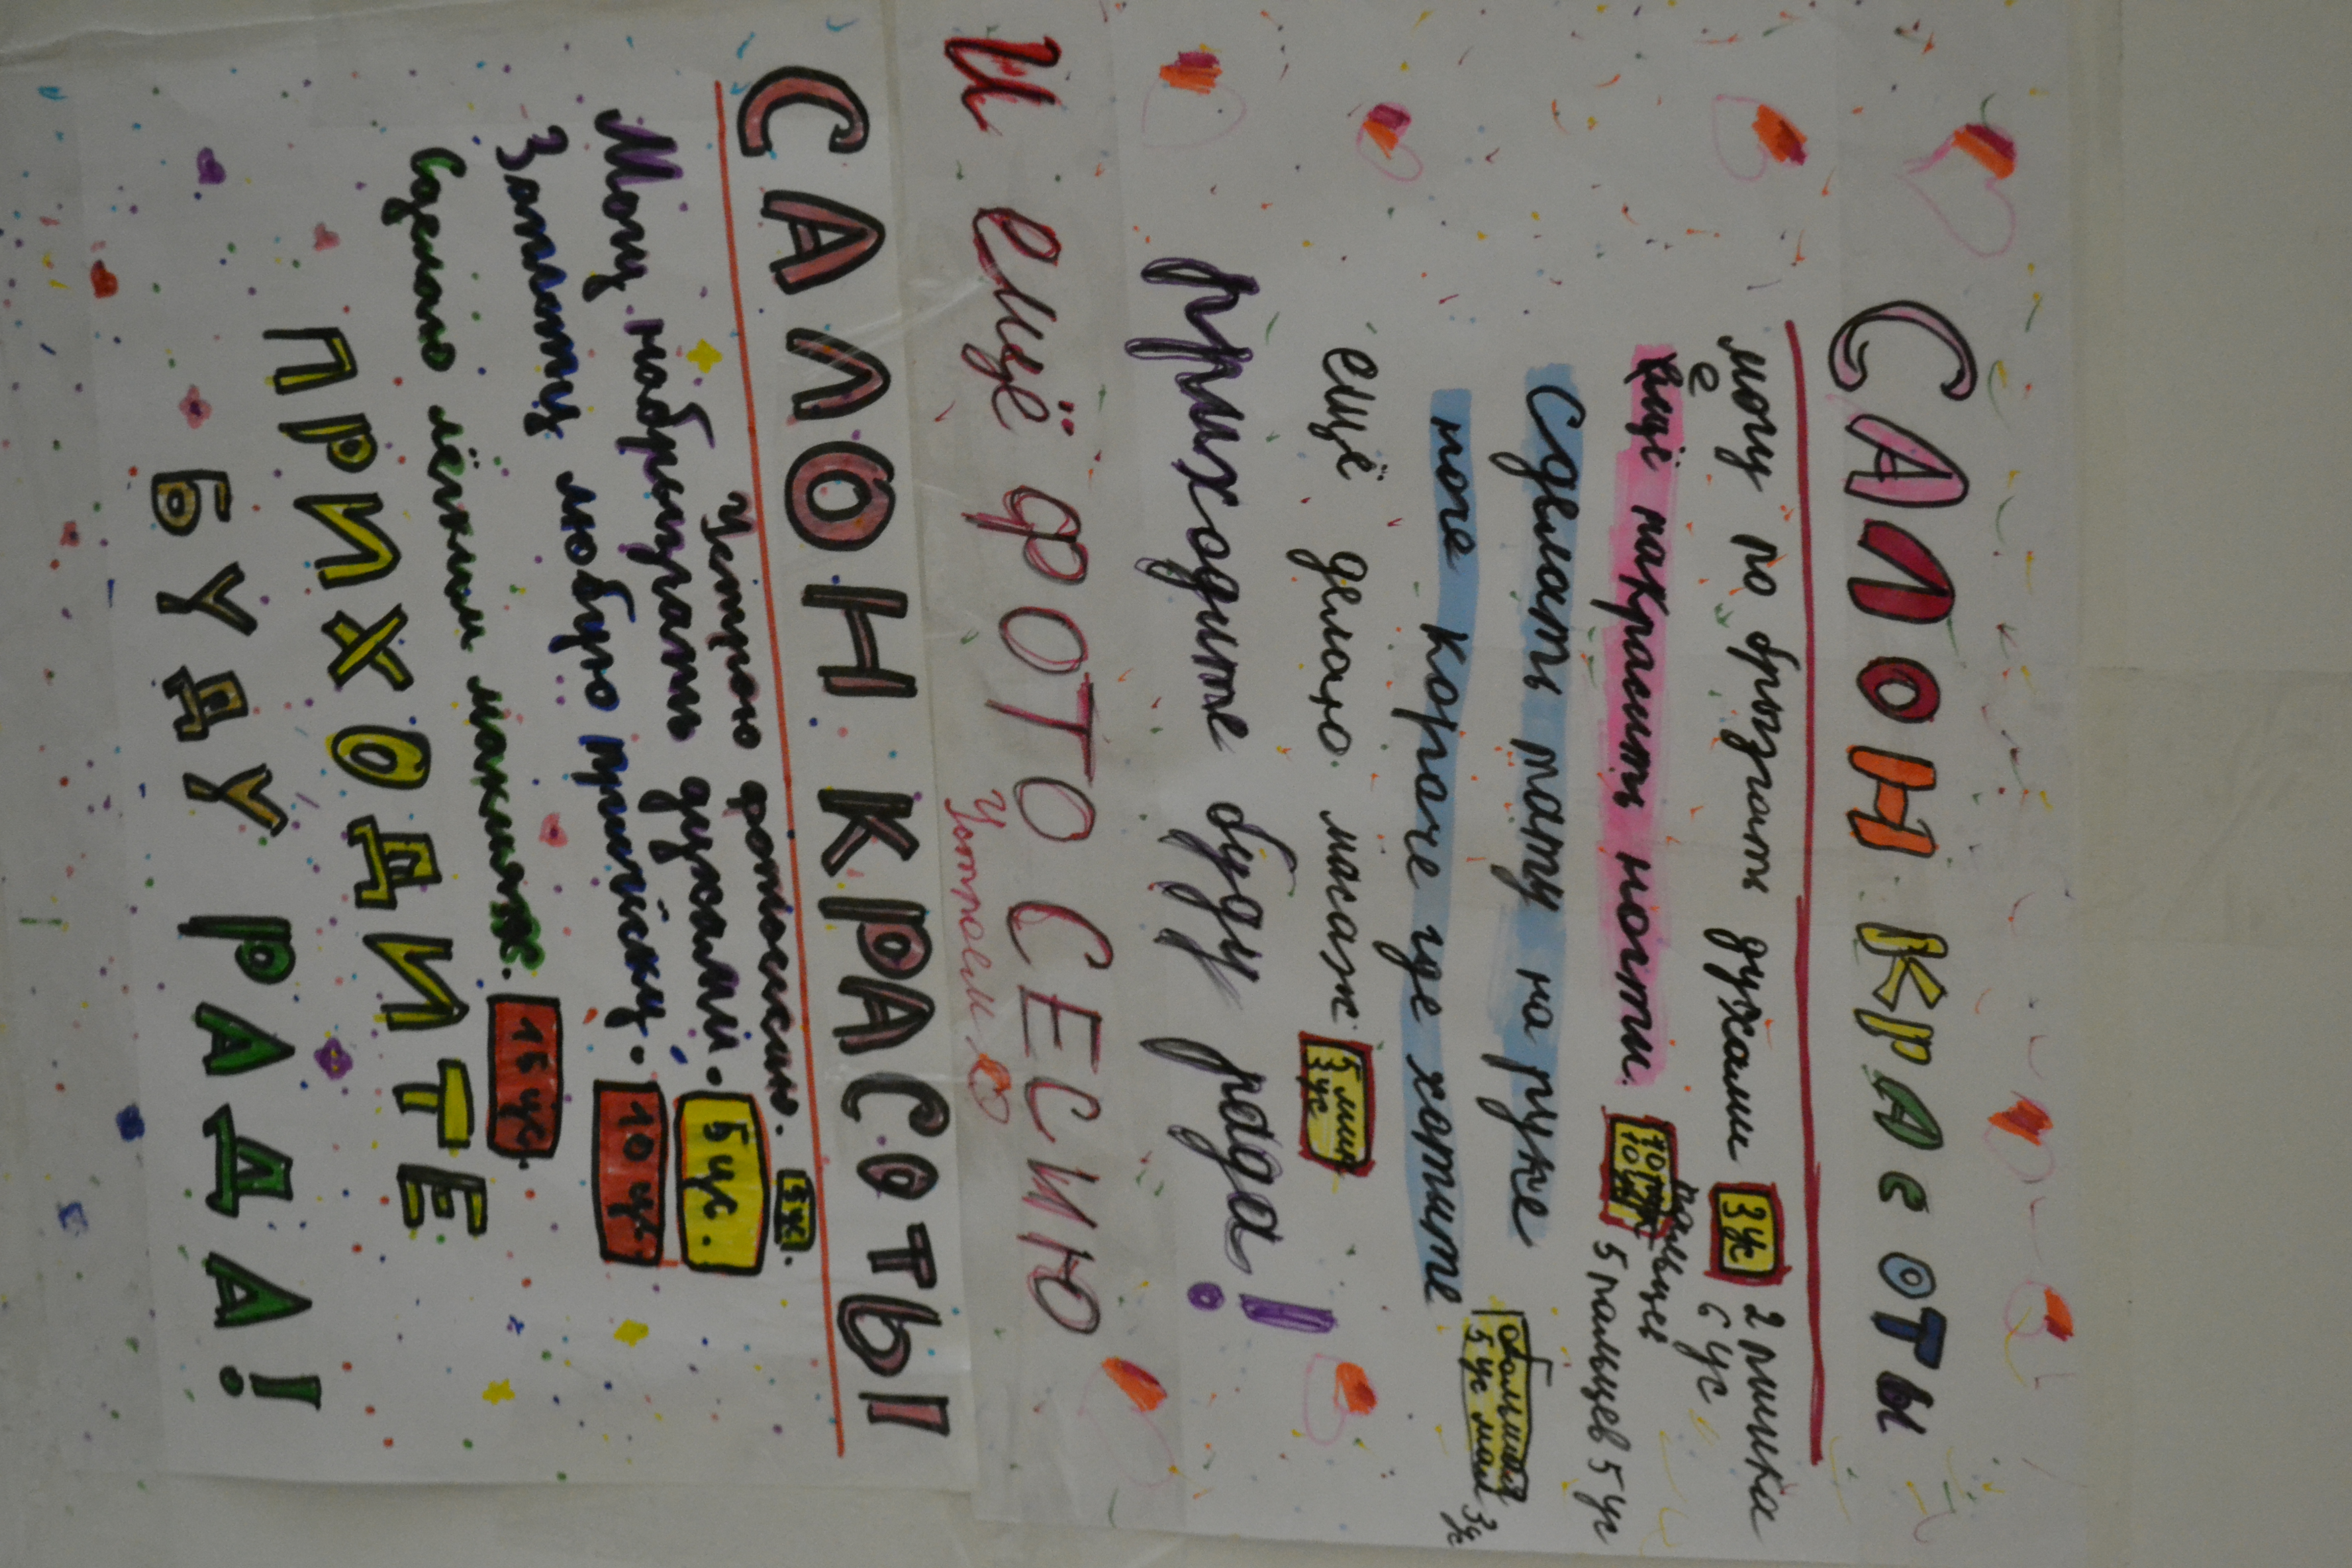 САЛОН КРАСОТЫ
могу по брызгать духами 3 ус 2 пшика
6 ус
ещё накрасить ногти. 10 пальцев
10 ус 5 пальцев 5 ус
Сделать тату на руке
ноге короче где хотите большая
5 ус мал 3 ус
ещё делаю масаж 5 мин
3 ус
приходите буду рада!
И ещё ФОТО СЕСИЮ
Устроем
САЛОН КРАСОТЫ
Устрою фотосессию. 5 ус.
Могу набрызгать духами. 5 ус.
Заплету любую причёску. 10 ус.
Сделаю лёгкий макияж. 15 ус.
ПРИХОДИТЕ
БУДУ РАДА!